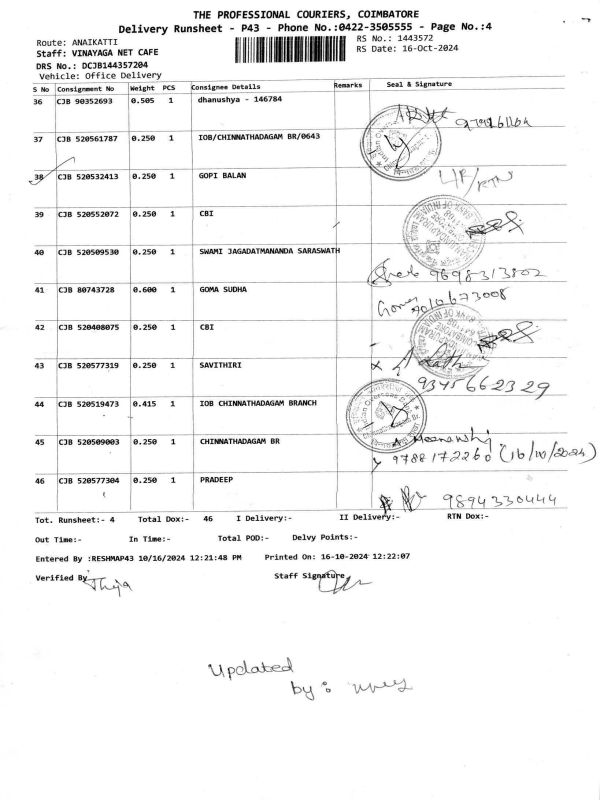 THE PROFESSIONAL COURIERS, COIMBATORE
Delivery Runsheet - P43 - Phone No.:0422-3505555 - Page No.:4
Route: ANAIKATTI
RS No.: 1443572
Staff: VINAYAGA NET CAFE
RS Date: 16-Oct-2024
DRS No.: DCJB144357204
Vehicle: Office Delivery
S No Consignment No Weight PCS Consignee Details Remarks Seal & Signature
36 CJB 90352693 0.505 1 dhanushya - 146784
37 CJB 520561787 0.250 1 IOB/CHINNATHADAGAM BR/0643
38 CJB 520532413 0.250 1 GOPI BALAN
39 CJB 520552072 0.250 1 CBI
40 CJB 520509530 0.250 1 SWAMI JAGADATMANANDA SARASWATH
9698313802
41 CJB 80743728 0.600 1 GOMA SUDHA
42 CJB 520408075 0.250 1 CBI
43 CJB 520577319 0.250 1 SAVITHIRI
9345662329
44 CJB 520519473 0.415 1 IOB CHINNATHADAGAM BRANCH
45 CJB 520509003 0.250 1 CHINNATHADAGAM BR
9788172260 (16/10/2024)
46 CJB 520577304 0.250 1 PRADEEP
9894330444
Tot. Runsheet:- 4 Total Dox:- 46 I Delivery:- II Delivery:- RTN Dox:-
Out Time:- In Time:- Total POD:- Delvy Points:-
Entered By :RESHMAP43 10/16/2024 12:21:48 PM Printed On: 16-10-2024 12:22:07
Verified By Staff Signature
Updated
by :